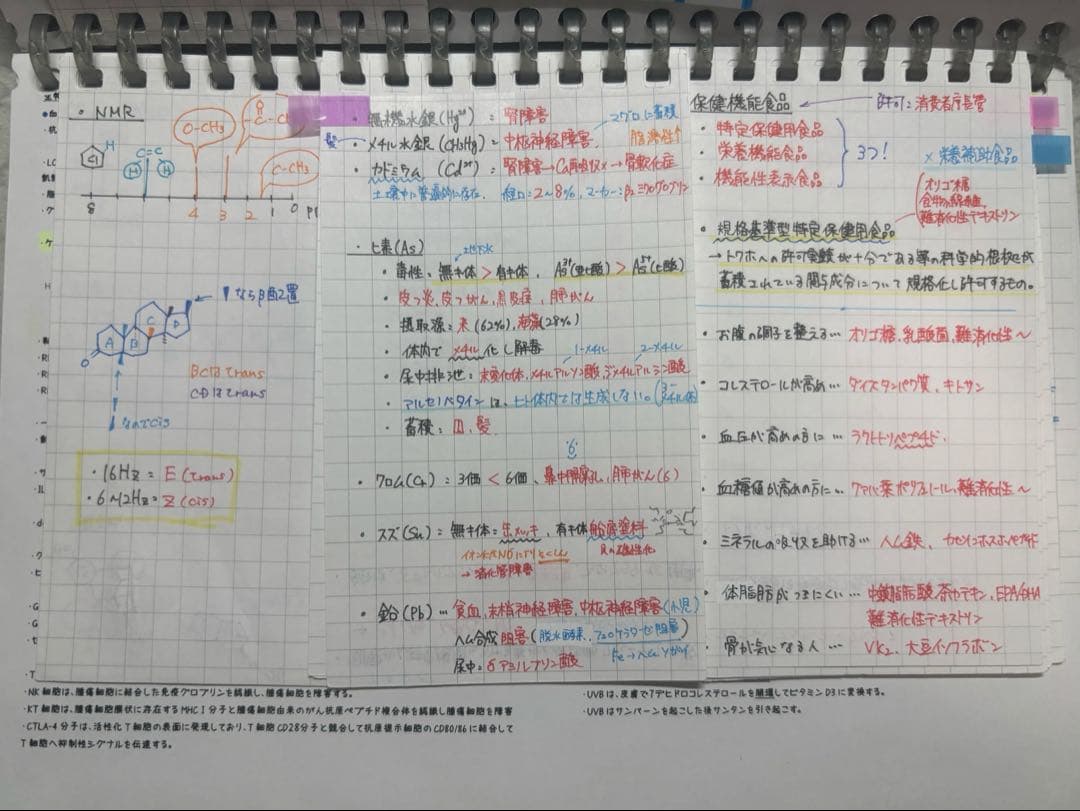 ・NMR
O-CH3
-C-C
H
C=C
H H
C-CH3
8 4 3 2 1 0 p
なら β配置
A B C D
O
BCは trans
CDは trans
なので cis
・16Hz = E (trans)
・6~12Hz = Z (cis)
・無機水銀(Hg2+) : 腎障害
髪
・メチル水銀(CH3Hg) = 中枢神経障害.
脂溶性↑
・カドミウム(Cd2+) : 腎障害→Ca再吸収×→骨軟化症
土壌中に普遍的に存在. 経口:2~8%, マーカー:β2ミクログロブリン
・ヒ素(As)
地下水
・毒性. 無機体 > 有機体. As3+(亜ヒ酸) > As5+(ヒ酸)
・皮フ炎, 皮フがん, 黒皮症, 肺がん
・摂取源:米(62%), 海藻(28%)
・体内でメチル化し解毒
1-メチル 2-メチル
・尿中排泄:未変化体, メチルアルソン酸, ジメチルアルシン酸
・アルセノベタインは, ヒト体内では生成しない。
・蓄積:皿, 髪
6
・クロム(Cr) : 3価 < 6価, 鼻中隔穿孔, 肺がん(6)
・スズ(Sn) : 無機体:缶メッキ, 有機体 船底塗料
→消化管障害
貝の雄性化
・鉛(Pb)… 貧血, 末梢神経障害, 中枢神経障害(小児)
ヘム合成 阻害(脱水酵素, フェロケラターゼ阻害)
尿中:δアミノレブリン酸
保健機能食品 許可:消費者庁長官
・特定保健用食品
・栄養機能食品 3つ!
・機能性表示食品
× 栄養補助食品
オリゴ糖
食物繊維
難消化性デキストリン
・規格基準型特定保健用食品
→トクホへの許可実績が十分である等の科学的根拠が
蓄積されている関与成分について規格化し許可するもの。
・お腹の調子を整える… オリゴ糖, 乳酸菌, 難消化性~
・コレステロールが高め… ダイズタンパク質, キトサン
・血圧が高めの方に… ラクトトリペプチド.
・血糖値が高めの方に… グァバ葉ポリフェノール, 難消化性~
・ミネラルの吸収を助ける… ヘム鉄, カゼインホスホペプチド
・体脂肪がつきにくい… 中鎖脂肪酸, 茶カテキン, EPA/DHA
難消化性デキストリン
・骨が気になる人… VK2, 大豆イソフラボン
・NK細胞は、腫瘍細胞に結合した免疫グロブリンを認識し、腫瘍細胞を障害する。
・KT細胞は、腫瘍細胞膜状に存在するMHCⅠ分子と腫瘍細胞由来のがん抗原ペプチド複合体を認識し腫瘍細胞を障害
・CTLA-4分子は、活性化T細胞の表面に発現しており、T細胞CD28分子と競合して抗原提示細胞のCD80/86に結合して
T細胞へ抑制性シグナルを伝達する。
・UVBは、皮膚で7デヒドロコレステロールを開環してビタミンD3に変換する。
・UVBはサンバーンを起こした後サンタンを引き起こす。